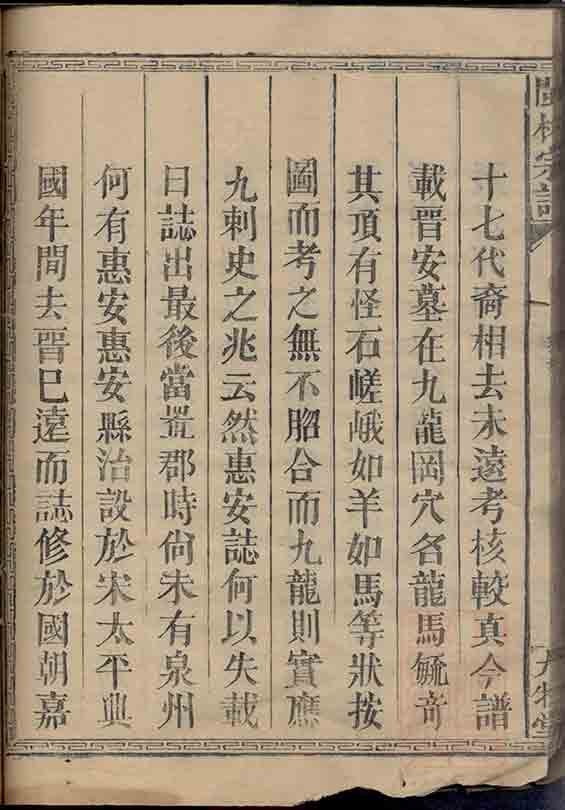 十七代裔相去未遠考核較真今譜
載晋安墓在九龍岡穴名龍馬毓奇
其項有怪石嵯峨如羊如馬等狀按
圖而考之無不脗合而九龍則實應
九刺史之兆云然惠安誌何以失載
曰誌出最後當置郡時尙未有泉州
何有惠安惠安縣治設於宋太平興
國年間去晋巳遠而誌修於國朝嘉